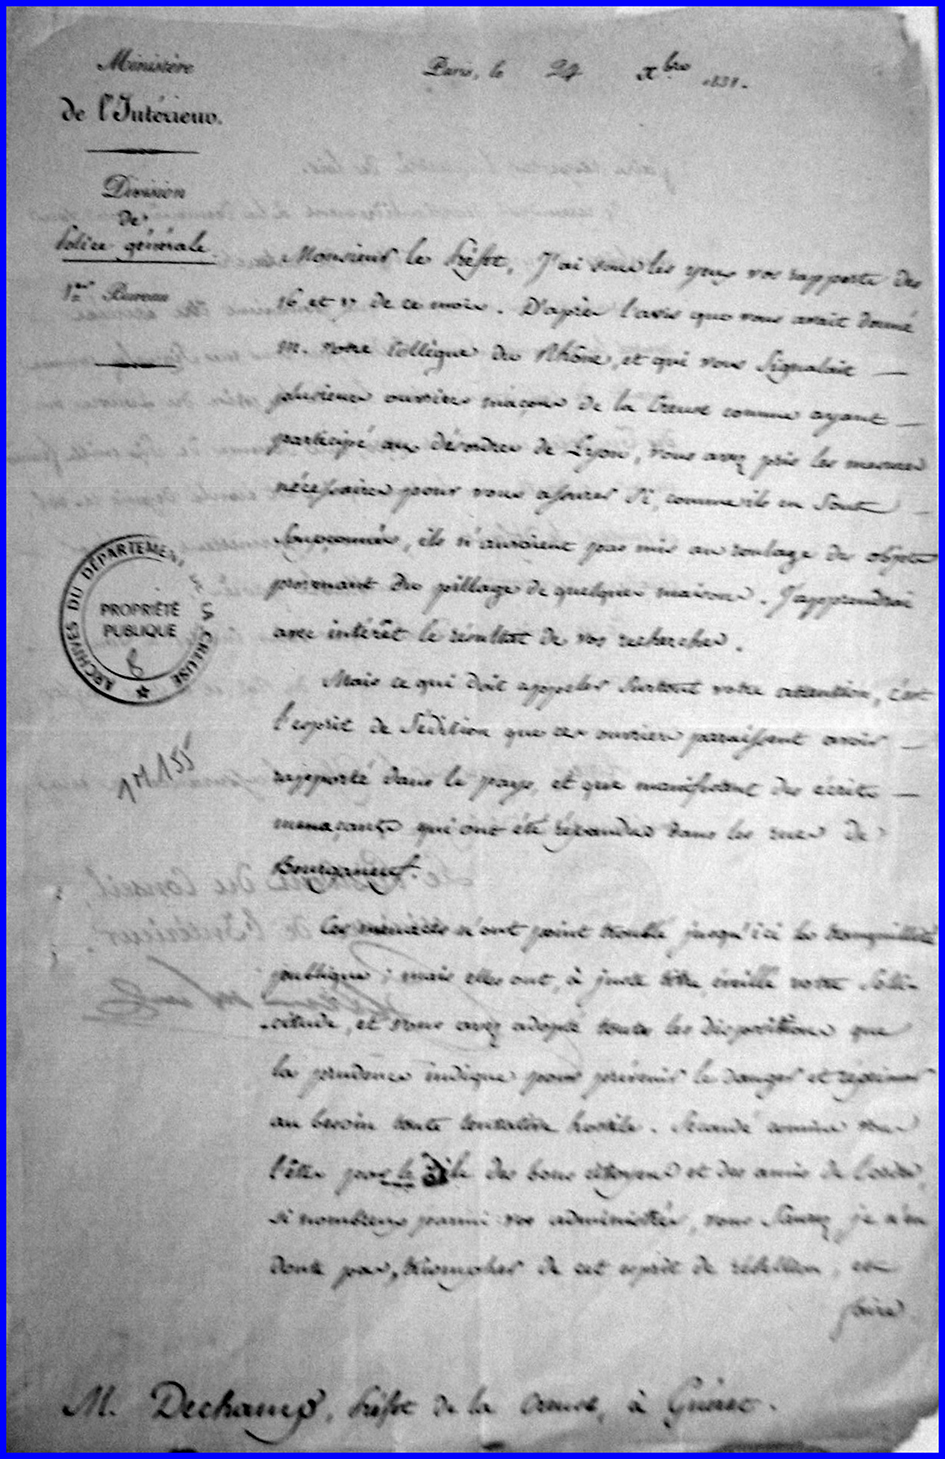 Ministère
de l'Intérieur.
Division
de
Police générale
1er Bureau
Paris, le 24 Xbre 1831.
Monsieur le Préfet, J'ai sous les yeux vos rapports des
16 et 17 de ce mois. D'après l'avis que vous avait donné
M. votre Collègue du Rhône, et qui vous signalait
plusieurs ouvriers maçons de la Creuse comme ayant
participé aux désordres de Lyon, vous avez pris les mesures
nécessaires pour vous assurer si, comme ils en sont
soupçonnés, ils n'auraient pas mis au roulage des objets
provenant du pillage de quelques maisons. J'apprendrai
avec intérêt le résultat de vos recherches.
Mais ce qui doit appeler surtout votre attention, c'est
l'esprit de sédition que ces ouvriers paraissent avoir
rapporté dans le pays, et que manifestent des écrits
menaçants qui ont été répandus dans les rues de
Bourganeuf.
Ces menaces n'ont point troublé jusqu'ici la tranquillité
publique ; mais elles ont, à juste titre, éveillé votre solli-
citude, et vous avez adopté toutes les dispositions que
la prudence indique pour prévenir le danger et réprimer
au besoin toute tentative hostile. Secondé comme vous
l'êtes par le zèle des bons citoyens et des amis de l'ordre,
si nombreux parmi vos administrés, vous saurez, je n'en
doute pas, triompher de cet esprit de rébellion, et
faire
M. Dechamps, Préfet de la Creuse, à Guéret.
ARCHIVES DU DÉPARTEMENT DE LA CREUSE
PROPRIÉTÉ
PUBLIQUE
8
1M155